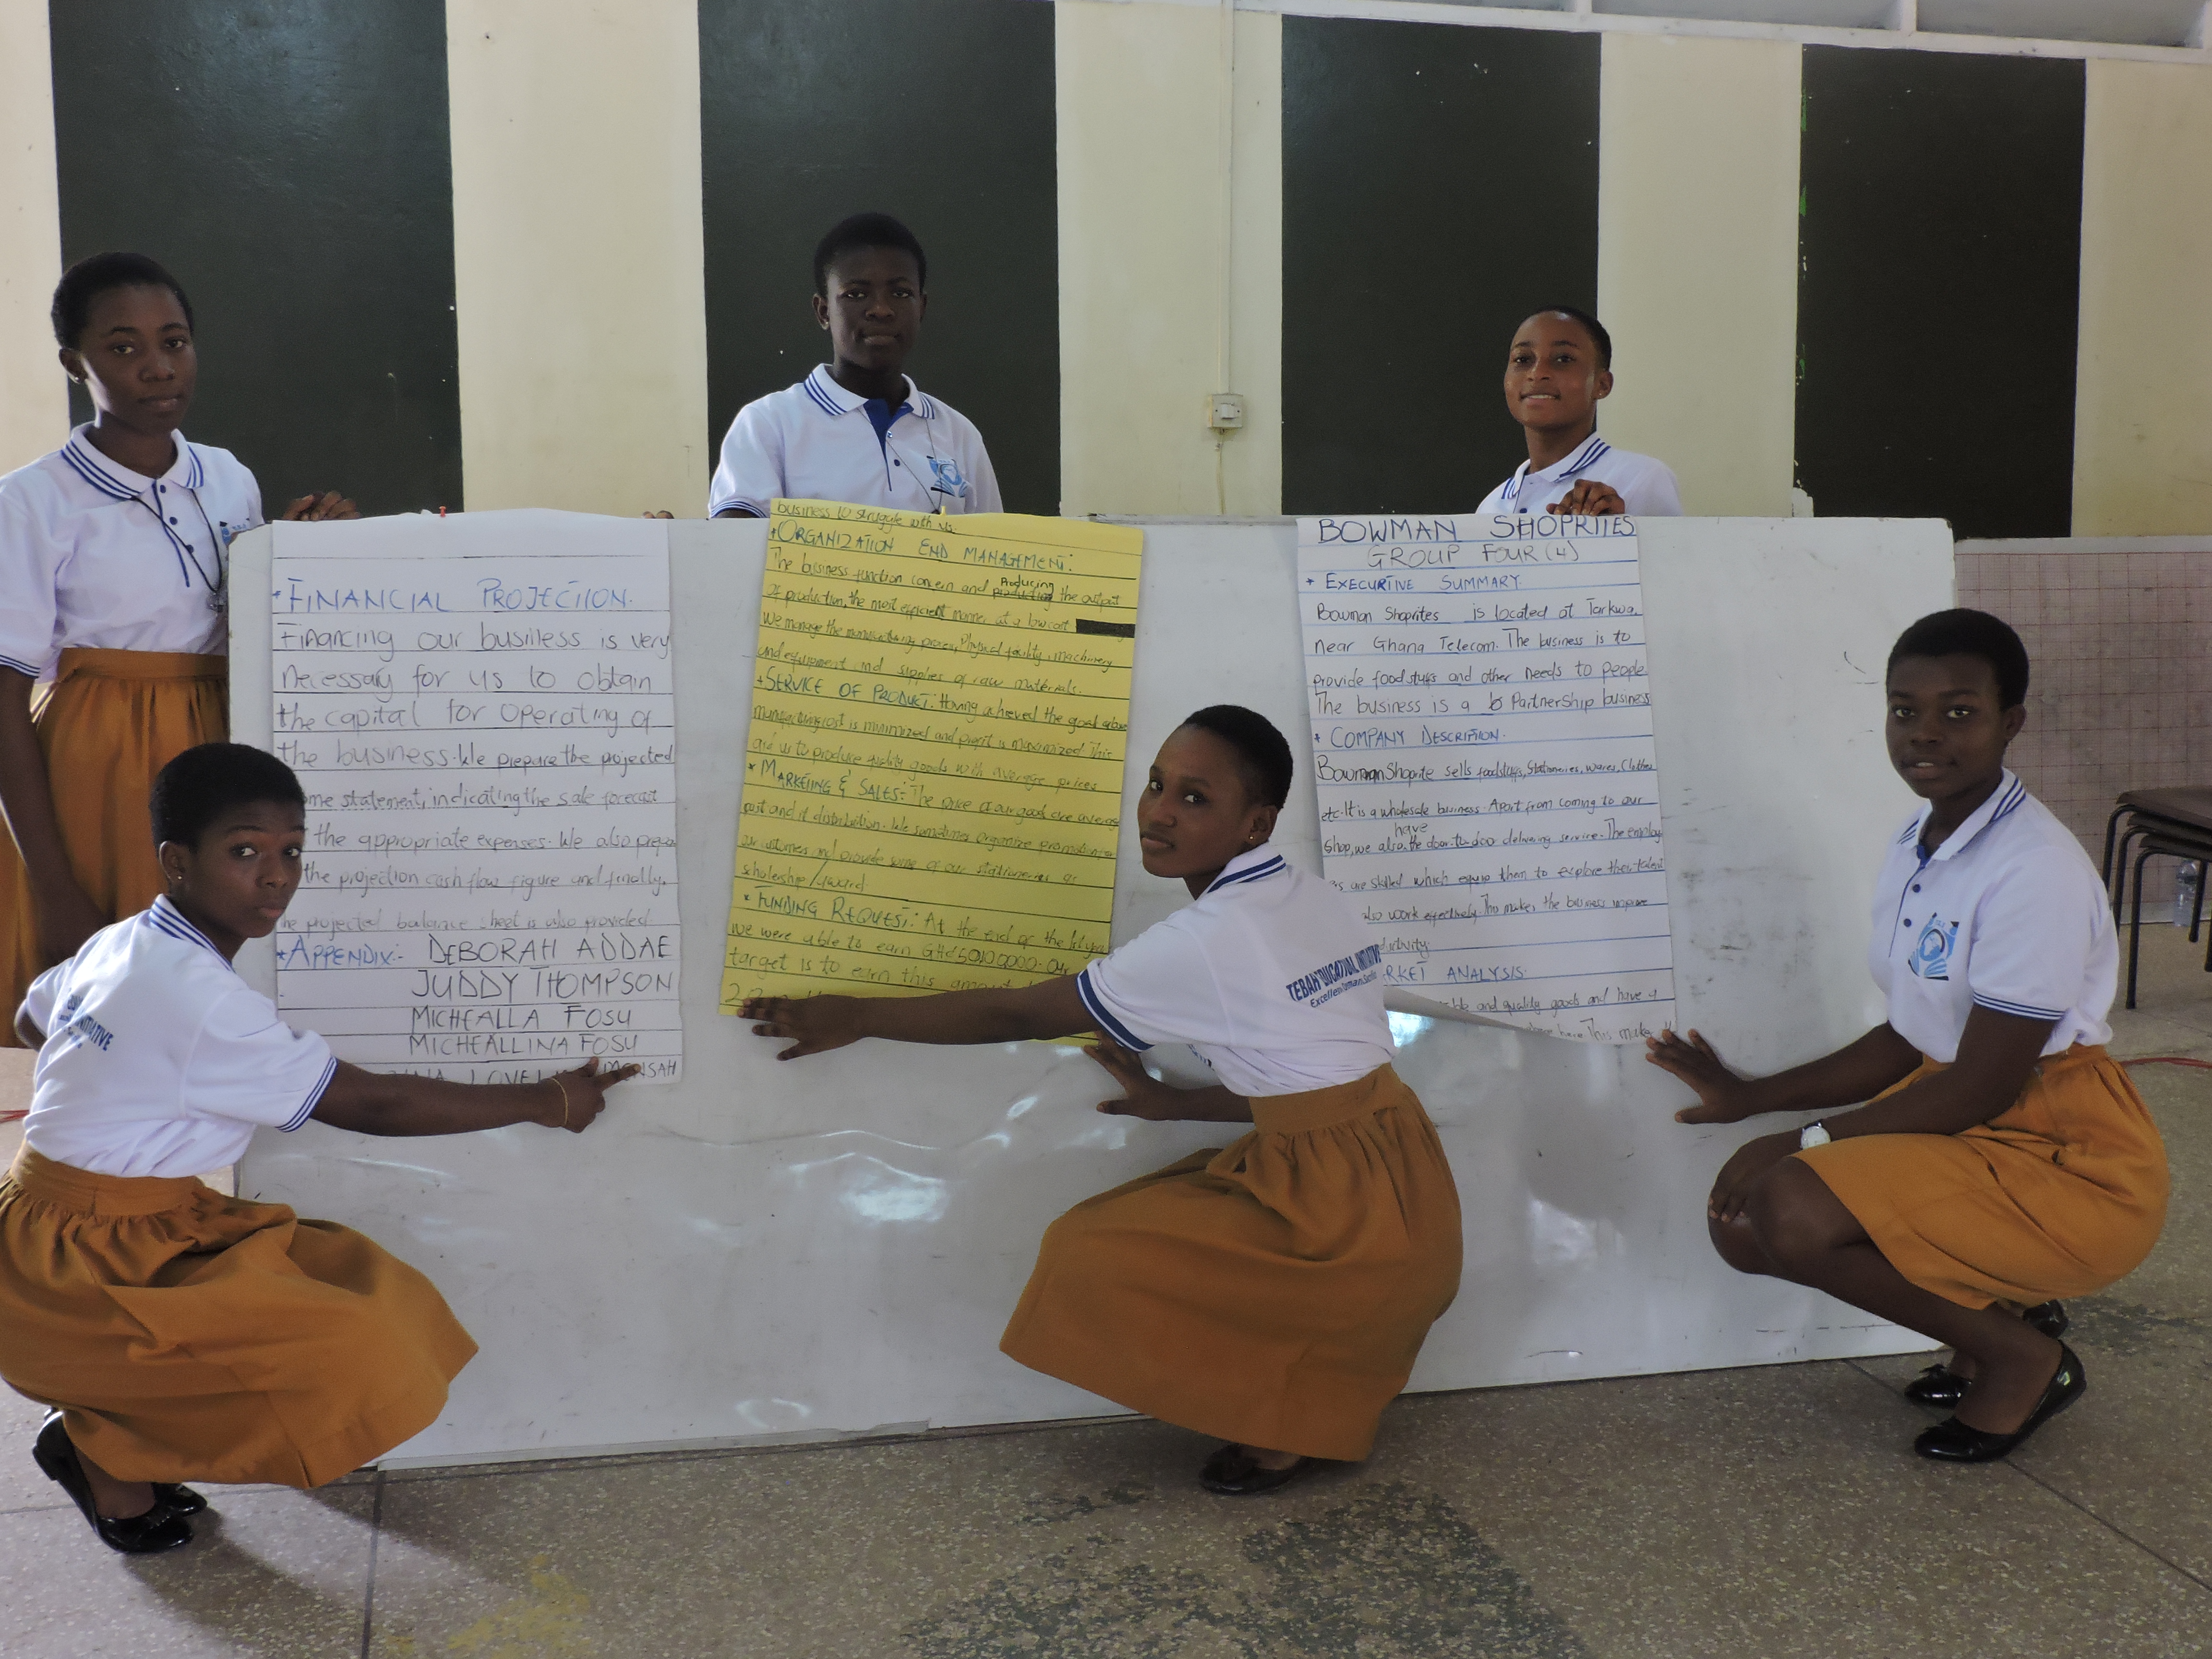 FINANCIAL PROJECTION.
Financing our business is very
necessary for us to obtain
the capital for operating of
the business. We prepare the projected
me statement, indicating the sale forecast
the appropriate expenses. We also
the projection cash flow figure and finally,
he projected balance sheet is also provided
* APPENDIX:- DEBORAH ADDAE
JUDDY THOMPSON
MICHEALLA FOSU
MICHEALLINA FOSU
MENSAH
business to struggle with us.
+ ORGANIZATION END MANAGEMENT:
The business function concern and Producing the output
Of production, the most efficient manner at a low cost
We manage the process, Physical facility, machinery
and equipment and supplies of raw materials.
+ SERVICE OF PRODUCT: Having achieved the goal
cost is minimized and profit is maximized This
aid us to produce quality goods with prices
* MARKETING & SALES: The price of our goods are
cost and it distribution. We sometimes organize
our customers and provide some of our stationeries as
scholarship / award
* FUNDING REQUEST: At the end of the 1st year
we were able to earn
target is to earn this amount
BOWMAN SHOPRITES
GROUP FOUR (4)
* EXECUTIVE SUMMARY
Bowman Shoprites is located at Tarkwa,
near Ghana Telecom. The business is to
provide food stuffs and other needs to people
The business is a PartnerShip business
* COMPANY DESCRIPTION.
Bowman Shoprite sells foodstuffs, Stationeries, wares, Clothes
etc. It is a wholesale business. Apart from coming to our
shop, we also have the door-to-doo delivering service. The
are skilled which to explore their talent
also work effectively. This makes the business improve
ductivity.
RKET ANALYSIS.
and quality goods and have a
This make
INITIATIVE
TEBAH EDUCATION INITIATIVE